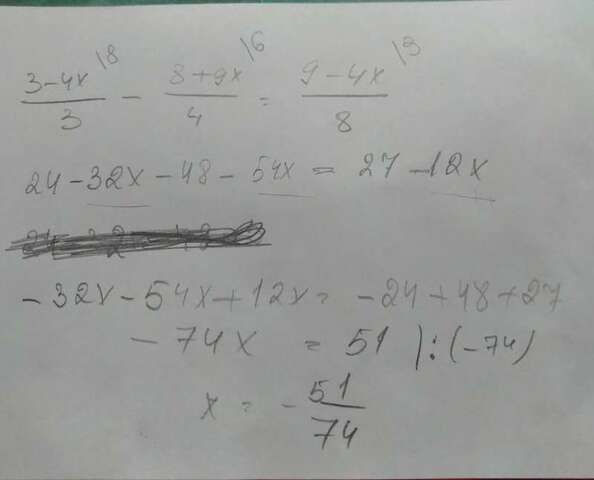 3-4x\8 / 3 - 8+9x\6 / 4 = 9-4x\3 / 8
24-32x-48-54x = 27-12x
-32x-54x+12x = -24+48+27
-74x = 51 ):(-74)
x = -51/74